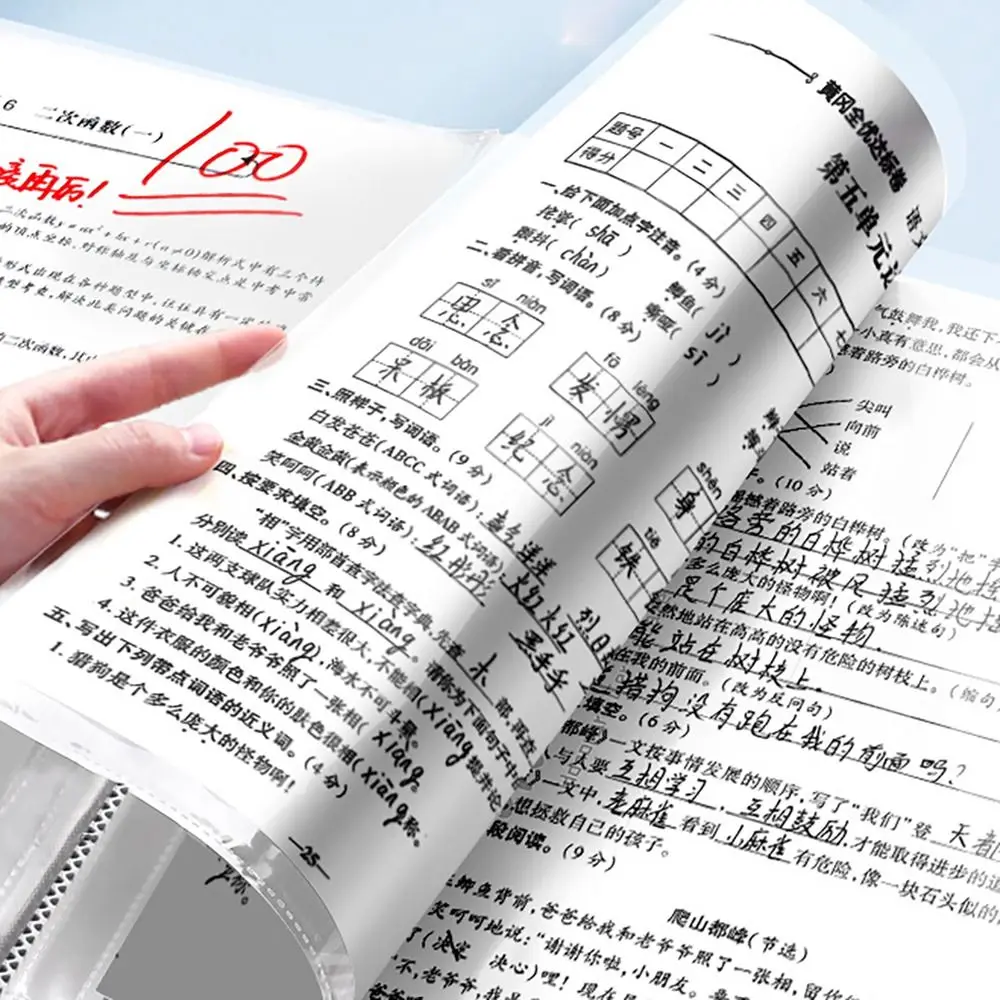 6 二次函数(一)
100
二次函数y=ax²+bx+c(a≠0)解析式中有三个待
的顶点坐标、对称轴及与坐标轴交点是中考中常
形式出现在各种题型中,往往具有一定的
型考查,解决此类问题的关键在
黄冈全优达标卷
第五单元
题号 一 二 三 四 五 六 七
得分
一、给下面加点字注音。(4分)
挓挲(shā) 鲫鱼(jì)
颤抖(chàn) (sī)
二、看拼音,写词语。(8分)
sī niàn
思念
fā lèng
发愣
shēn
身
dāi bǎn
呆板
jì niàn
纪念
tiě
铁
三、照样子,写词语。(9分)
白发苍苍(ABCC式词语):
金黄金黄(表示颜色的ABAB式词语):火红火红
笑呵呵(ABB式词语):红彤彤 黑乎乎
四、按要求填空。(8分)
“相”字用部首查字法查字典,先查 木 部,再查
分别读 xiāng 和 xiàng。请你为下面句子中
1. 这两支球队实力相差很大,不能相(xiāng)提并论。
2. 人不可貌相(xiàng),海水不可斗量。
3. 爸爸给我和老爷爷照了一张相(xiàng)。
4. 这件衣服的颜色和你的肤色很相(xiāng)称。
五、写出下列带点词语的近义词。(4分)
1. 猎狗是个多么庞大的怪物啊!
—25
气鼓舞我,我还下
小真有意思,都会从
着路旁的白桦树。
尖叫
向前
说
站着
。(10分)
撼着路旁的白桦树。(改为“把”
路旁的白桦树猛烈地摇
的白桦树被风猛烈地
多么庞大的怪物啊!(改为陈述句)
是个庞大的怪物
然地站在高高的没有危险的树枝上。(缩句
能站在树枝上。
在我的前面。(改为反问句)
猎狗没有跑在我的前面吗?
填空。(6分)
都峰》一文按事情发展的顺序,写了“我们”登 天都
人与人要 互相学习、互相鼓励,才能取得进步的道
一文中,老麻雀 看到 小麻雀 有危险,像一块石头似的
想拯救自己的孩子。
段阅读。(9分)
爬山都峰(节选)
鲫鱼背前,爸爸给我和老爷爷照了一张相,留作
笑呵呵地说:“谢谢你啦,小朋友。
了(决定 决心)哩!现在
“不,老爷爷,我是